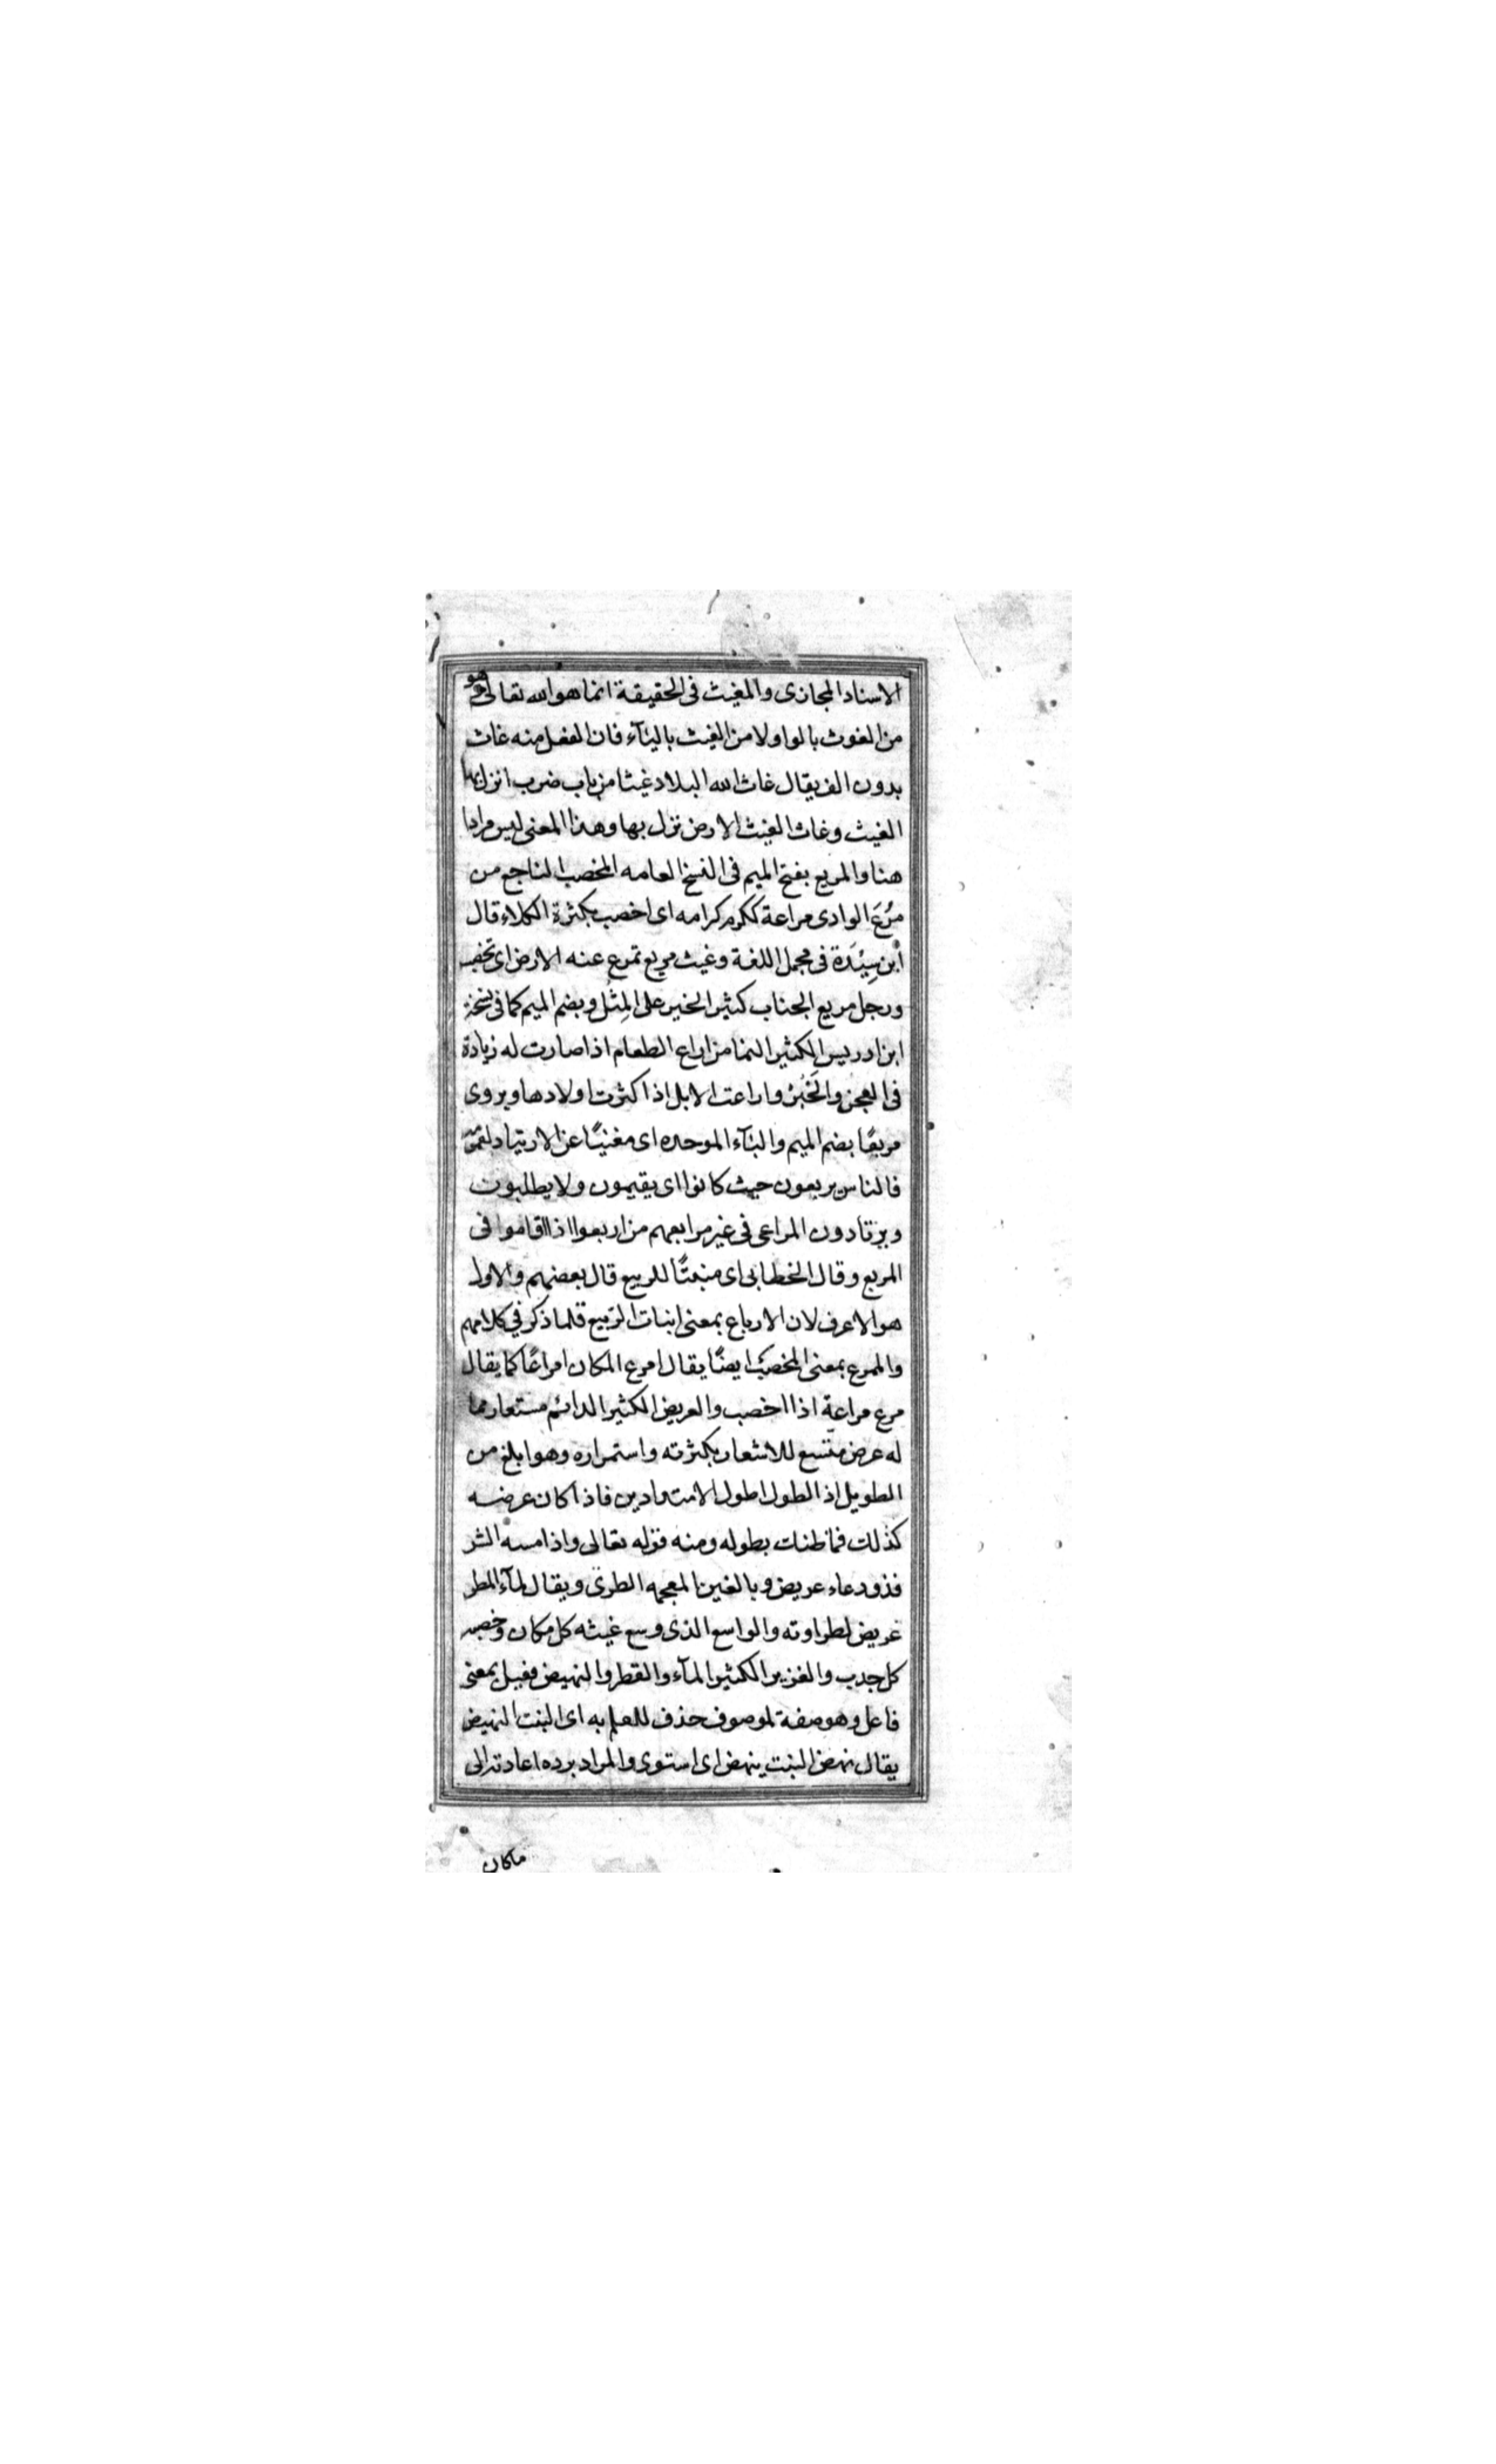 الاسناد المجازى والمغيث فى الحقيقة انما هو الله تعالى وهو
من الغوث بالواو لا من الغيث باليآء فان الفعل منه غاث
بدون الف يقال غاث الله البلاد غيثا من باب ضرب انزل بها
الغيث وغاث الغيث الارض نزل بها وهذا المعنى ليس مرادا
هنا والمريع بفتح الميم فى النسخ العامه المخصب الناجع من
مَرُعَ الوادى مراعة ككرم كرامه اى اخصب بكثرة الكلاء قال
أبن سِيْدَة فى مجمل اللغة وغيث مريع تمرع عنه الارض اى تخصب
ورجل مريع الجناب كثير الخير على المِثل وبضم الميم كما فى نسخة
ابن ادريس الكثير النما من اراع الطعام اذا صارت له زيادة
فى العجن والخَبْز واراعت الابل اذا كثرت اولادها ويروى
مربعًا بضم الميم والبآء الموحده اى مغنيًا عن الارتياد لعمومه
فالناس يربعون حيث كانوا اى يقيمون ولا يطلبون
ويرتادون المراعى فى غير مرابعهم من اربعوا اذا اقاموا فى
المربع وقال الخطابى اى منبتًا للربيع قال بعضهم والاول
هو الاعرف لان الارباع بمعنى انبات الربيع قلما ذكر في كلامهم
والممرع بمعنى المخصب ايضًا يقال امرع المكان امراعًا كما يقال
مرع مراعة اذا اخصب والعريض الكثير الدائم مستعار مما
له عرض متسع للاشعار بكثرته واستمراره وهو ابلغ من
الطويل اذ الطول اطول الامتدادين فاذا كان عرضه
كذلك فما ظنك بطوله ومنه قوله تعالى واذا مسه الشر
فذو دعاء عريض وبالغين المعجمه الطرى ويقال لمآء المطر
غريض لطراوته والواسع الذى وسع غيثه كل مكان وخصبه
كل جدب والغزير الكثير المآء والقطر والنهيض فعيل بمعنى
فاعل وهو صفة لموصوف حذف للعلم به اى النبت النهيض
يقال نهض النبت ينهض اى استوى والمراد برده اعادته الى
ماكان